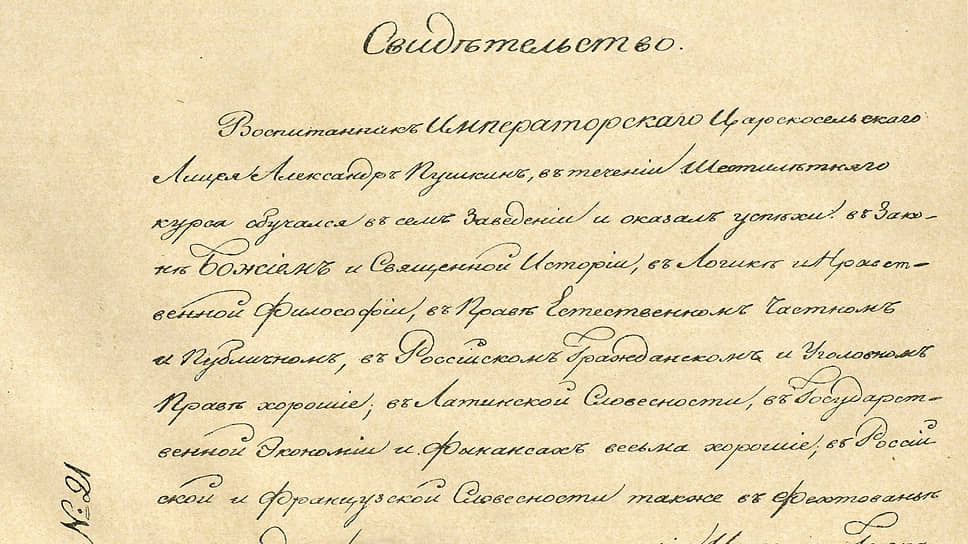 Свидѣтельство.
Воспитанникъ Императорскаго Царскосельскаго
Лицея Александръ Пушкинъ, въ теченіи Шестилѣтняго
курса обучался въ семъ Заведеніи и оказалъ успѣхи: въ Зако-
нѣ Божіемъ и Священной Исторіи, въ Логикѣ и Нравст-
венной Философіи, въ Правѣ Естественномъ Частномъ
и Публичномъ, въ Россійскомъ Гражданскомъ и Уголовномъ
Правѣ хорошіе; въ Латинской Словесности, въ Государст-
венной Экономіи и Финансахъ весьма хорошіе; въ Россій
ской и Французской Словесности также въ Фехтованьи
№ 21